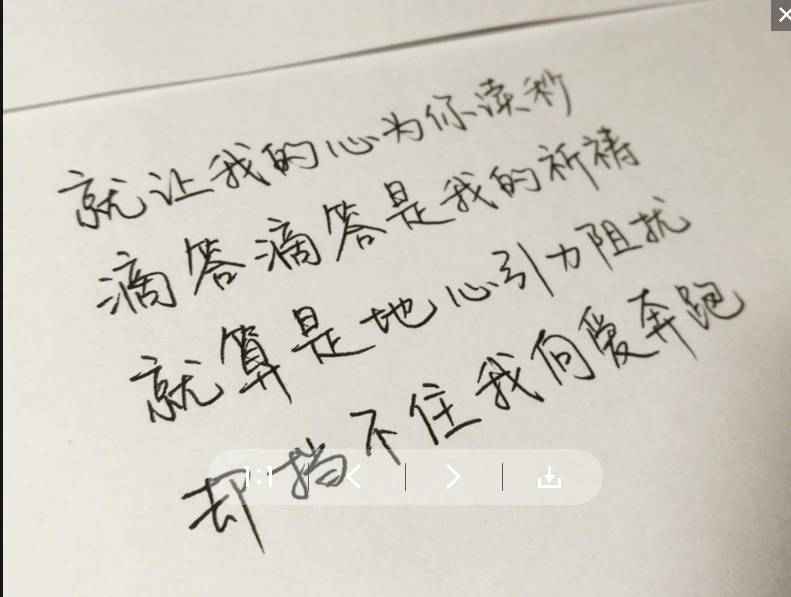 就让我的心为你读秒
滴答滴答是我的祈祷
就算是地心引力阻扰
却挡不住我向爱奔跑
1:1